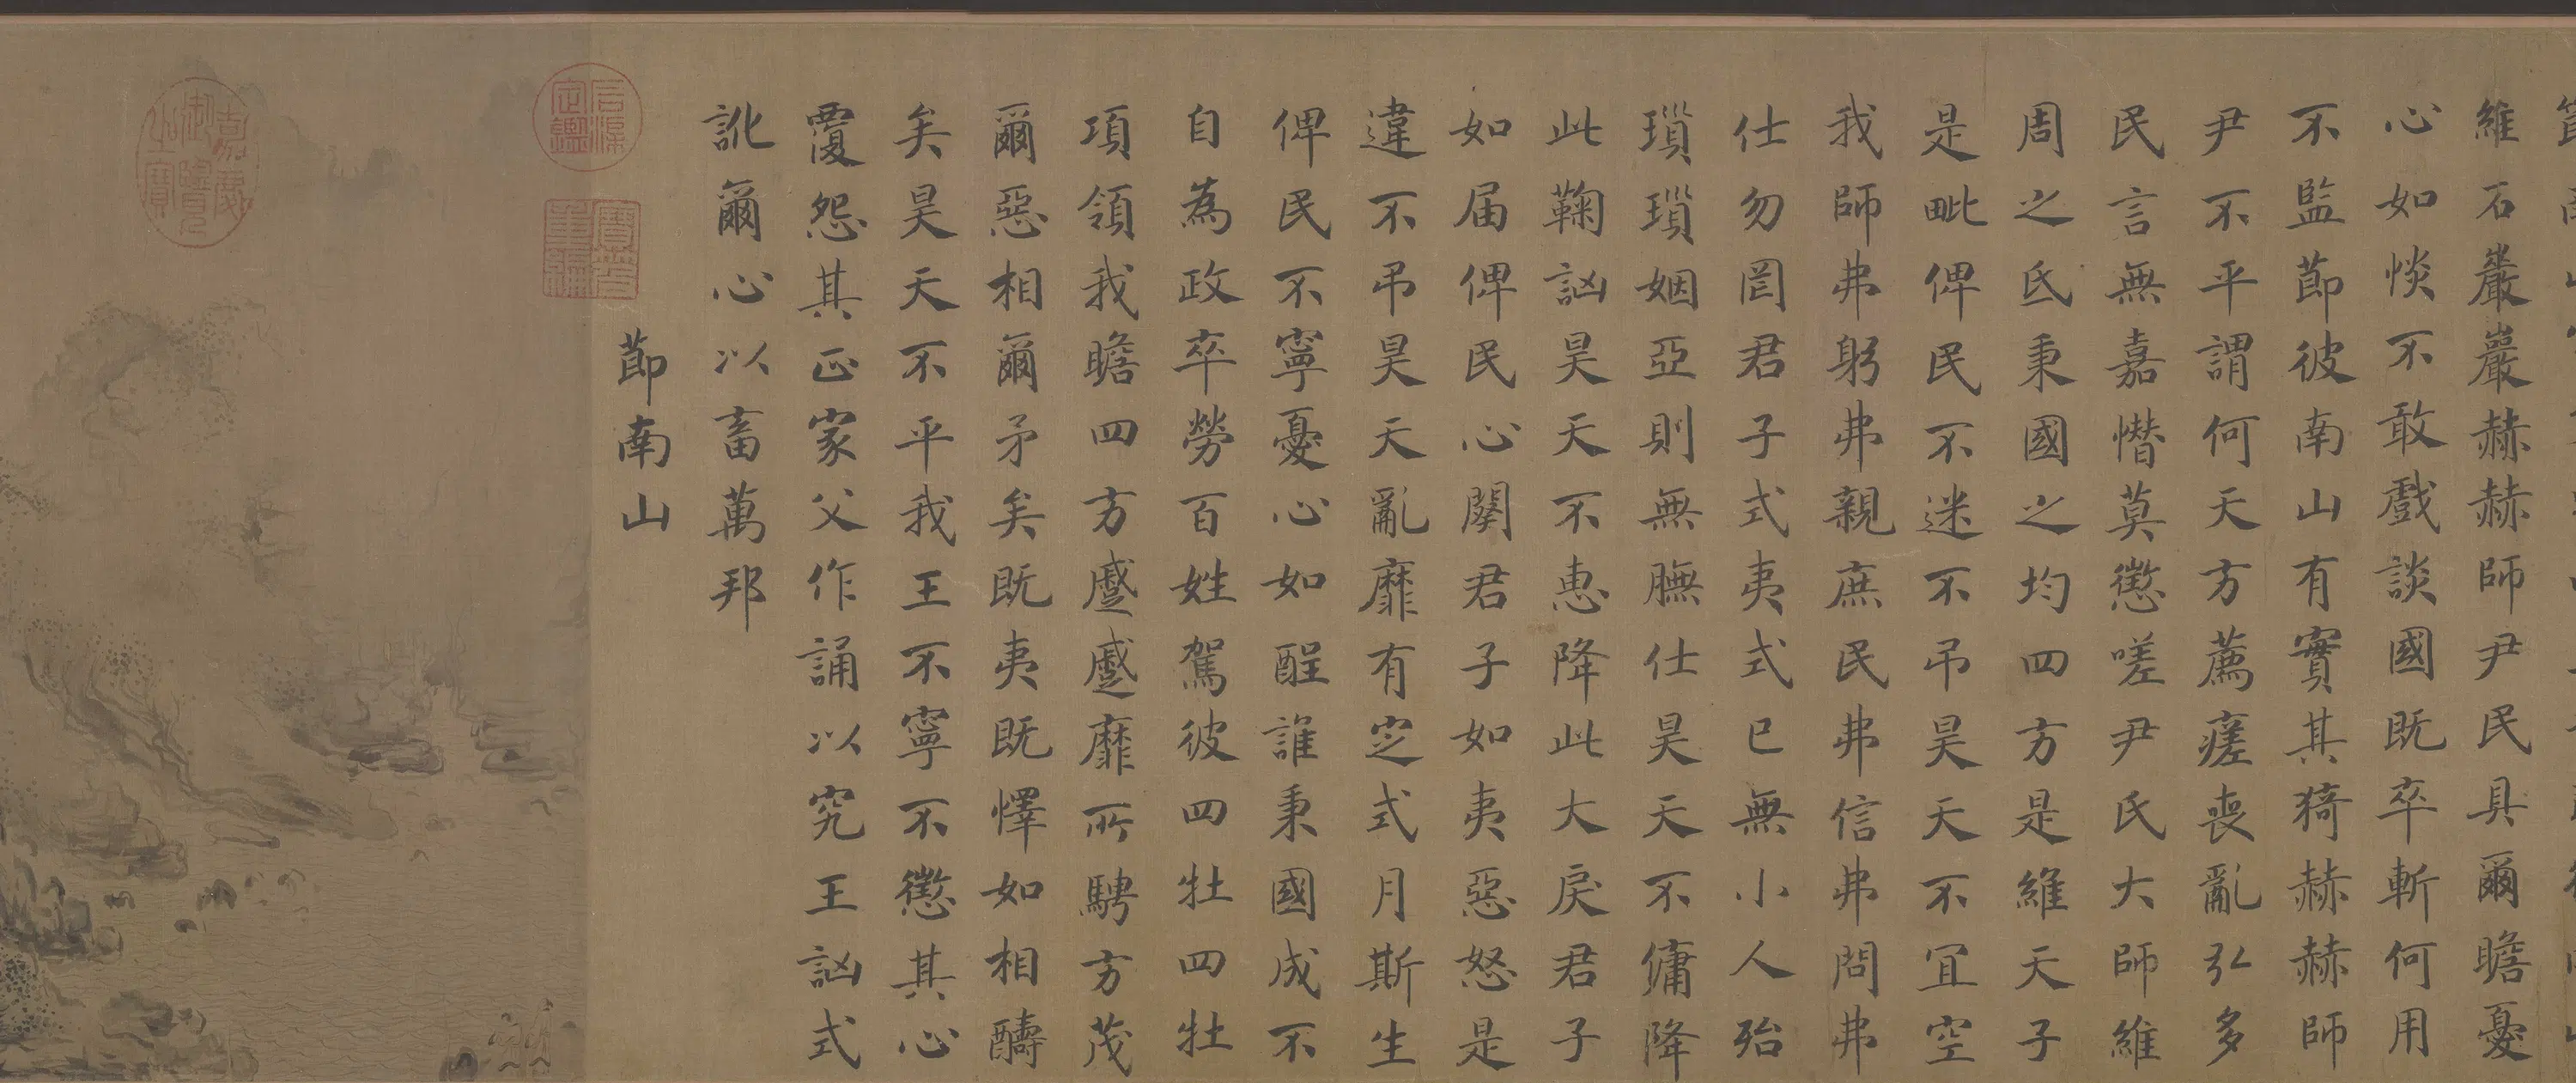 維石巖巖赫赫師尹民具爾瞻憂
心如惔不敢戲談國既卒斬何用
不監節彼南山有實其猗赫赫師
尹不平謂何天方薦瘥喪亂弘多
民言無嘉憯莫懲嗟尹氏大師維
周之氐秉國之均四方是維天子
是毗俾民不迷不弔昊天不宜空
我師弗躬弗親庶民弗信弗問弗
仕勿罔君子式夷式已無小人殆
瑣瑣姻亞則無膴仕昊天不傭降
此鞠訩昊天不惠降此大戾君子
如届俾民心闋君子如夷惡怒是
違不弔昊天亂靡有定式月斯生
俾民不寧憂心如酲誰秉國成不
自為政卒勞百姓駕彼四牡四牡
項領我瞻四方蹙蹙靡所騁方茂
爾惡相爾矛矣既夷既懌如相醻
矣昊天不平我王不寧不懲其心
覆怨其正家父作誦以究王訩式
訛爾心以畜萬邦
節南山
石渠定鑑
寶笈重編
嘉慶御覽之寶